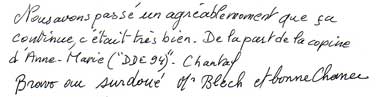 Nous avons passé un agréable moment que ça
continue, c'était très bien. De la part de la copine
d'Anne-Marie ("DDE94"). Chantal
Bravo au surdoué Mr Bloch et bonne Chance